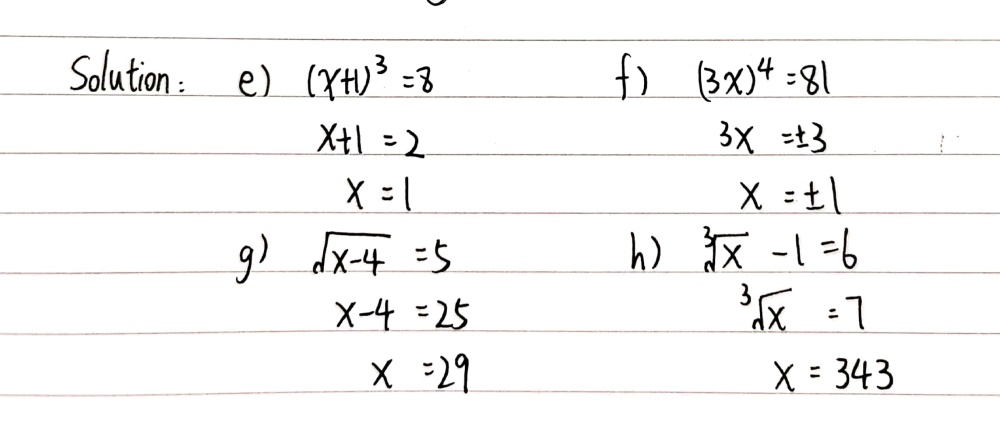 Solution: e) (x+1)³ = 8 f) (3x)⁴ = 81
x+1 = 2 3x = ±3
x = 1 x = ±1
g) √(x-4) = 5 h) ³√x - 1 = 6
x-4 = 25 ³√x = 7
x = 29 x = 343